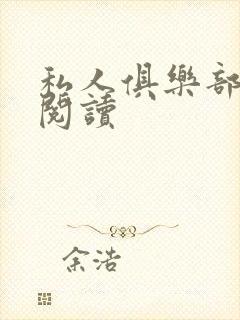 私人俱樂部
閱讀
余浩